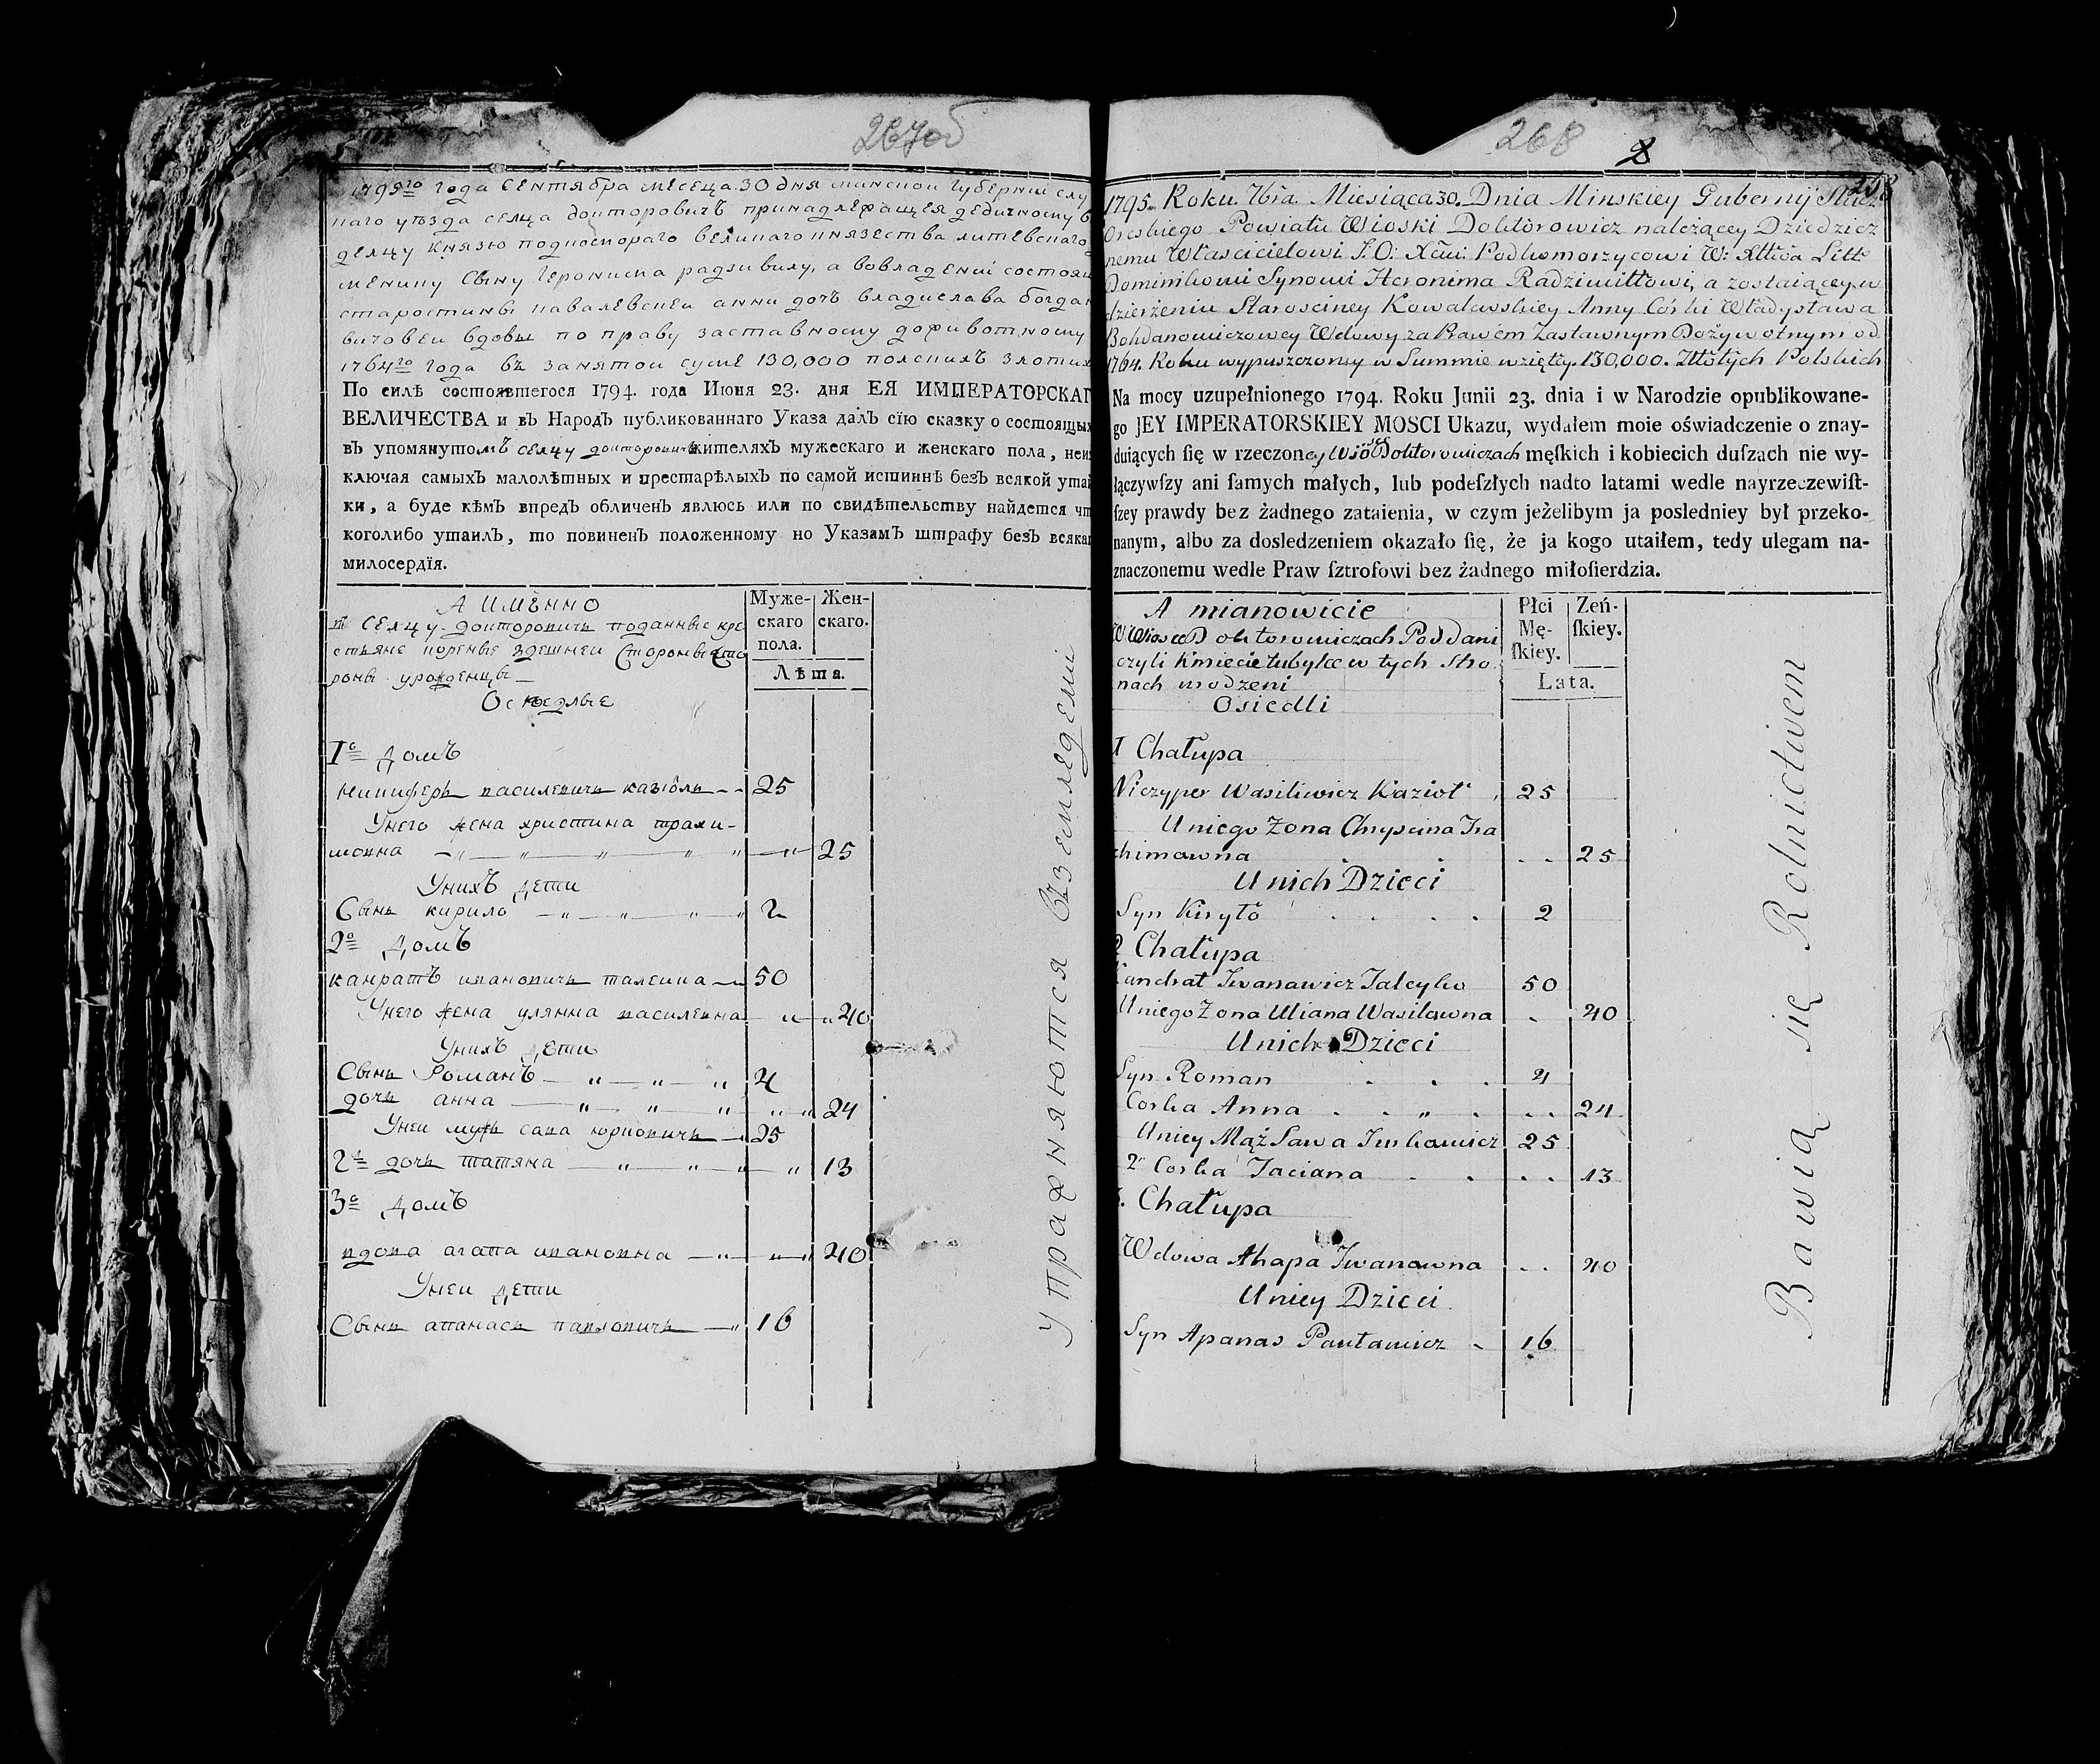 267об
1795го года Сентября месеца 30 дня минской губернии слу
наго уѣзда селца докторовичъ принадлежащея дедичному в
делцу князю подкомораго великаго князества литевскаго
менику сыну Геронима радзивилу, а вовладении состоящ
старостины ковалевскеи анни дочъ владислава богдан
вичовеи вдовы по праву заставному доживотному
1764го года въ занятои суме 130,000 полскихъ злотих
По силѣ состоявшегося 1794. года Июня 23. дня ЕЯ ИМПЕРАТОРСКАГ
ВЕЛИЧЕСТВА и въ Народъ публикованнаго Указа далъ сїю сказку о состоящих
въ упомянутомъ селцу докторовичъ жителяхъ мужескаго и женскаго пола, неи
ключая самыхъ малолѣтныхъ и престарѣлыхъ по самой истиннѣ безъ всякой утай
ки, а буде кѣмъ впредъ обличенъ явлюсь или по свидѣтельству найдется чт
коголибо утаилъ, то повиненъ положенному по Указамъ штрафу безъ всякаг
милосердїя.
А имѣнно
въ селцу докторовичъ поданные кре
стьяне кореные здешнеи стороны сто
роны урожденцы
Оседлые
Муже-
скаго
пола.
Жен-
скаго.
Лѣта.
1е Домъ
никиферъ василевичъ казюлъ 25
Унего жена христина трахи-
мовна 25
Унихъ дети
Сынъ кирило 2
2е Домъ
канратъ ивановичъ талейка 50
Унего жена улянна василевна 40
Унихъ дети
Сынъ Романъ 4
дочъ анна 24
Унеи мужъ сава юрковичъ 25
2я дочъ татяна 13
3е Домъ
вдова агапа ивановна 40
Унеи дети
Сынъ апанасъ павловичъ 16
Упражняются Взземледелии
268
2
1795. Roku. 7bra. Miesiąca 30. Dnia Minskiey Gubernij Słuc
Oreskiego Powiatu Wioski Doktorowicz należącey Dziedzicz
nemu Właścicielowi J.O. Xciu: Podkomorzycowi W: Xttwa Litto
Dominikowi Synowi Heronima Radziwiłłowi, a zostaiącey w
dzierżeniu Starosciney Kowalewskiey Anny Córki Władysława
Bohdanowiczowey Wdowy za Prawem Zastawnym Dożywotnym od
1764. Roku wypuszczoney w Summie wziętey 130,000. Złłotych Polskich
Na mocy uzupełnionego 1794. Roku Junii 23. dnia i w Narodzie opublikowane-
go JEY IMPERATORSKIEY MOSCI Ukazu, wydałem moie oświadczenie o znay-
duiących ſię w rzeczoney Wsi Doktorowiczach męſkich i kobiecich duſzach nie wy-
łączywſzy ani ſamych małych, lub podeſzłych nadto latami wedle nayrzeczewiſt-
ſzey prawdy bez żadnego zataienia, w czym jeżelibym ja posledniey był przeko-
nanym, albo za dosledzeniem okazało ſię, że ja kogo utaiłem, tedy ulegam na-
znaczonemu wedle Praw ſztrofowi bez żadnego miłoſierdzia.
A mianowicie
W Wiosce Doktorowiczach Poddani
czyli Kmiecie tubylce w tych stro
nach urodzeni
Osiedli
Płci
Mę-
ſkiey.
Zeń-
ſkiey.
Lata.
1 Chałupa
Niczyper Wasiliwicz Kazioł 25
U niego Zona Chryscina Tra
chimowna 25
U nich Dzieci
Syn Kiryło 2
2 Chałupa
Kandrat Iwanawicz Taleyko 50
U niego Zona Uliana Wasilowna 40
U nich Dzieci
Syn Roman 4
Corka Anna 24
U niey Mąż Sawa Jurkowicz 25
2 Corka Taciana 13
3. Chałupa
Wdowa Ahapa Iwanowna 40
U niey Dzieci
Syn Apanas Pawławicz 16
Bawią się Rolnictwem